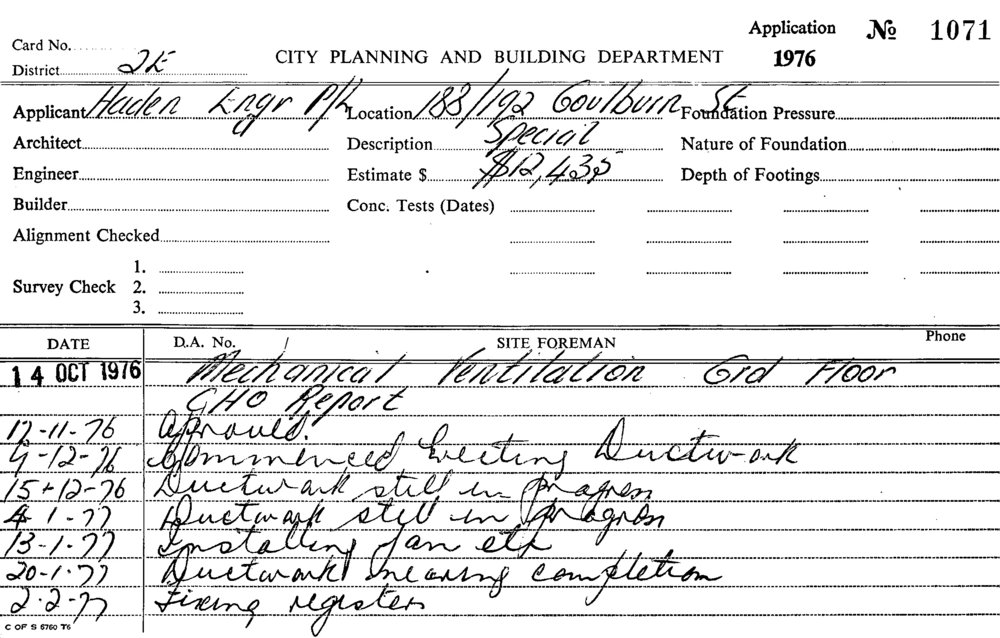 Application № 1071
Card No.
District 2E CITY PLANNING AND BUILDING DEPARTMENT 1976
Applicant Haden Engr P/L Location 188/192 Goulburn St Foundation Pressure
Architect Description Special Nature of Foundation
Engineer Estimate $ $12,435 Depth of Footings
Builder Conc. Tests (Dates)
Alignment Checked
1.
Survey Check 2.
3.
DATE D.A. No. / SITE FOREMAN Phone
14 OCT 1976 Mechanical Ventilation Grd Floor
CHO Report
17-11-76 Approved.
9-12-76 Commenced Erecting Ductwork
15-12-76 Ductwork still in progress
4-1-77 Ductwork still in progress
13-1-77 Installing fan etc
20-1-77 Ductwork nearing completion
2-2-77 Fixing registers
C OF S 6760 T6